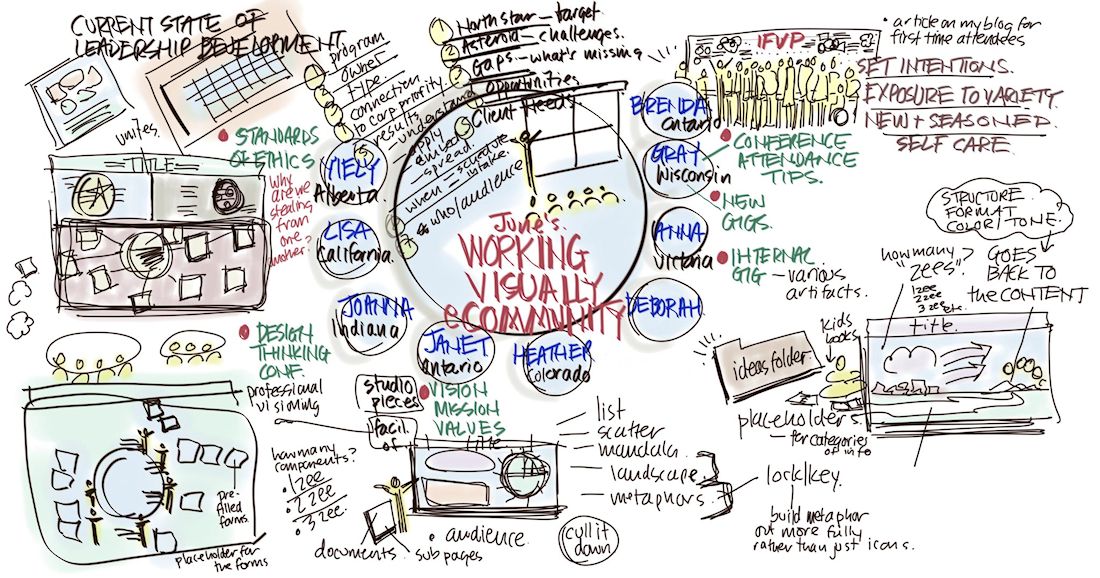 CURRENT STATE OF
LEADERSHIP DEVELOPMENT
program
owner
type.
connection
to corp priority.
results
understand
apply
embed
spread.
when — schedule
intake.
# who/audience
1 North star — target
2 Asteroid — challenges.
3 Gaps — what's missing
Opportunities
5 Client needs
IFVP
• article on my blog for
first time attendees
SET INTENTIONS.
EXPOSURE TO VARIETY
NEW + SEASONED.
SELF CARE.
• STANDARDS
OF ETHICS
Why
are we
stealing
from
one
another?
TITLE
YIELY
Alberta.
LISA
California.
JOANNA
Indiana
JANET
ontario
HEATHER
Colorado
DEBORAH
ANNA
Victoria
GRAY
Wisconsin
BRENDA
Ontario
June's.
WORKING
VISUALLY
eCOMMUNITY
• CONFERENCE
ATTENDANCE
TIPS.
• NEW
GIGS.
• INTERNAL
GIG — various
artifacts.
STRUCTURE
FORMAT
COLOR/TONE.
how many
"zees"?
1zee
2zee
3zee
etc.
GOES
BACK TO
the CONTENT
title.
kids
books
ideas folder
placeholders
— for categories
of info
• DESIGN
THINKING
CONF.
professional
visioning
pre-
filled
forms.
placeholder for
the forms
studio
pieces
facil.
of
• VISION
MISSION
VALUES
title
how many
components?
• 1zee
• 2zee
• 3zee
documents
• sub pages
• audience
cull it
down
— list
— scatter
— mandala
— landscape
— metaphors.
lock/key.
build metaphor
out more fully
rather than just icons.